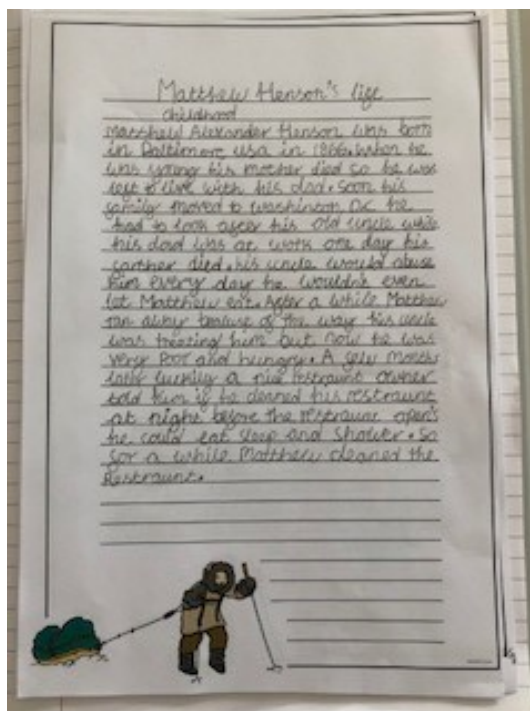 Matthew Henson's life
Childhood
Matthew Alexander Henson was born
in Baltimore usa in 1866. when he
was young his mother died so he was
left to live with his dad. soon his
family moved to washington DC he
had to look after his old uncle while
his dad was at work one day his
farther died. his uncle would abuse
him every day he wouldn't even
let Matthew eat. After a while Matthew
ran away because of the way his uncle
was treating him but now he was
very Poor and hungry. A few months
later luckily a nice restraunt owner
told him if he cleaned his restraunt
at night before the restraunt open's
he could eat sleep and shower. so
for a while Matthew cleaned the
Restraunt.